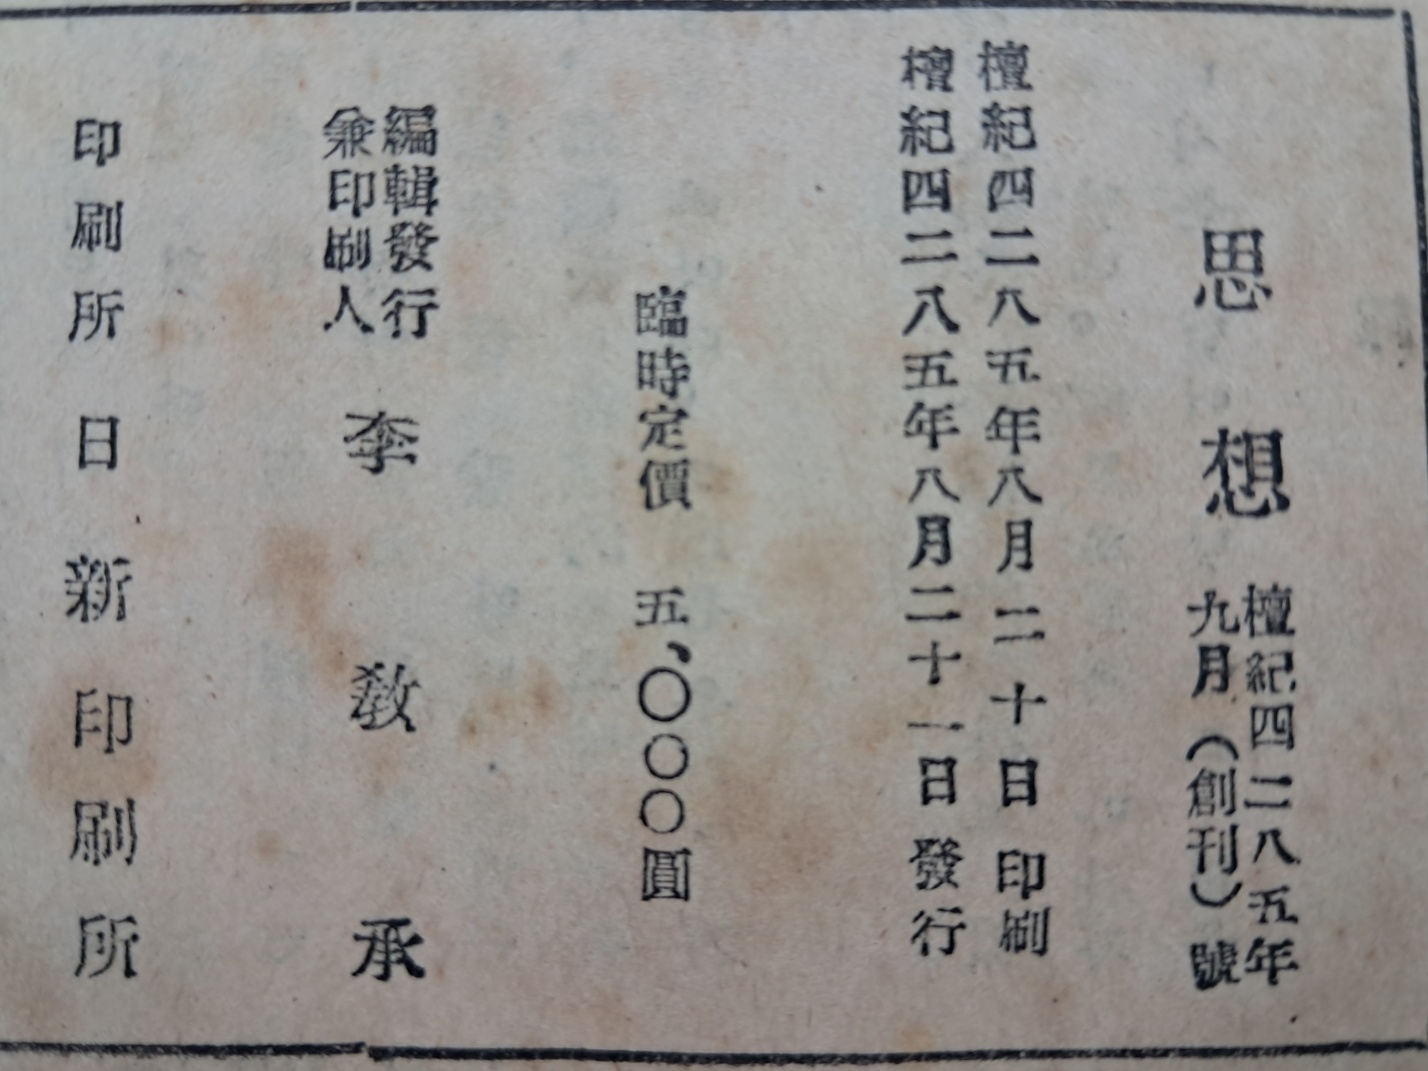 思想
檀紀四二八五年
九月(創刊)號
檀紀四二八五年八月二十日印刷
檀紀四二八五年八月二十一日發行
臨時定價 五、〇〇〇圓
編輯發行
兼印刷人
李敎承
印刷所 日新印刷所